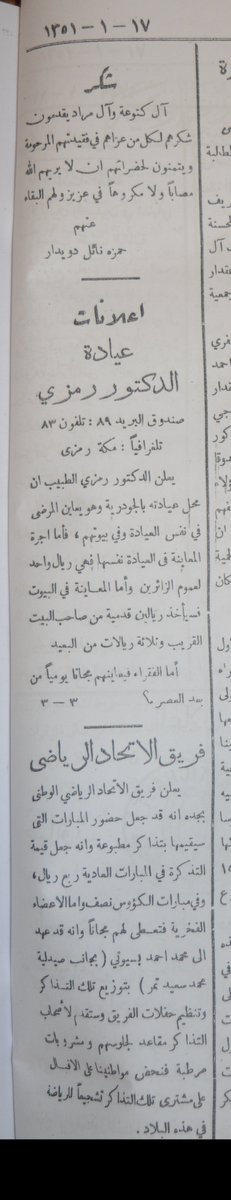 ١٧ – ١ – ١٣٥١
شكر
آل كنوعة وآل مراد يقدمون
شكرهم لكل من عزاهم في فقيدتهم المرحومة
ويتمنون لحضراتهم ان لا يريهم الله
مصاباً ولا مكروهاً في عزيز ولهم البقاء
عنهم
حمزه نائل دويدار
اعلانات
عيادة
الدكتور رمزي
صندوق البريد ٨٩ : تلفون ٨٣
تلغرافياً : مكة رمزى
يعلن الدكتور رمزي الطبيب ان
محل عيادته بالجودرية وهو يعاين المرضى
في نفس العيادة وفي بيوتهم ، فأما اجرة
المعاينة في العيادة نفسها فهي ريال واحد
لعموم الزائرين وأما المعاينة في البيوت
فسيأخذ ريالين قدمية من صاحب البيت
القريب وثلاثة ريالات من البعيد
أما الفقراء فيعاينهم مجانا يومياً من
بعد العصر
٣ – ٣
فريق الاتحاد الرياضي
يعلن فريق الاتحاد الرياضي الوطنى
بجده انه قد جعل حضور المبارات التى
سيقيمها بتذاكر مطبوعة وانه جعل قيمة
التذكرة في المبارات العادية ربع ريال،
وفي مبارات الكؤوس نصف واما الاعضاء
الفخرية فتعطى لهم مجاناً وانه قد عهد
الى محمد احمد بسيوني ( بجانب صيدلية
محمد سعيد تمر ) بتوزيع تلك التذاكر
وتنظيم حفلات الفريق وستقدم لأصحاب
التذاكر مقاعد لجلوسهم ومشروبات
مرطبة فنحض مواطنينا على الاقبال
على مشترى تلك التذاكر تشجيعاً للرياضة
في هذه البلاد .